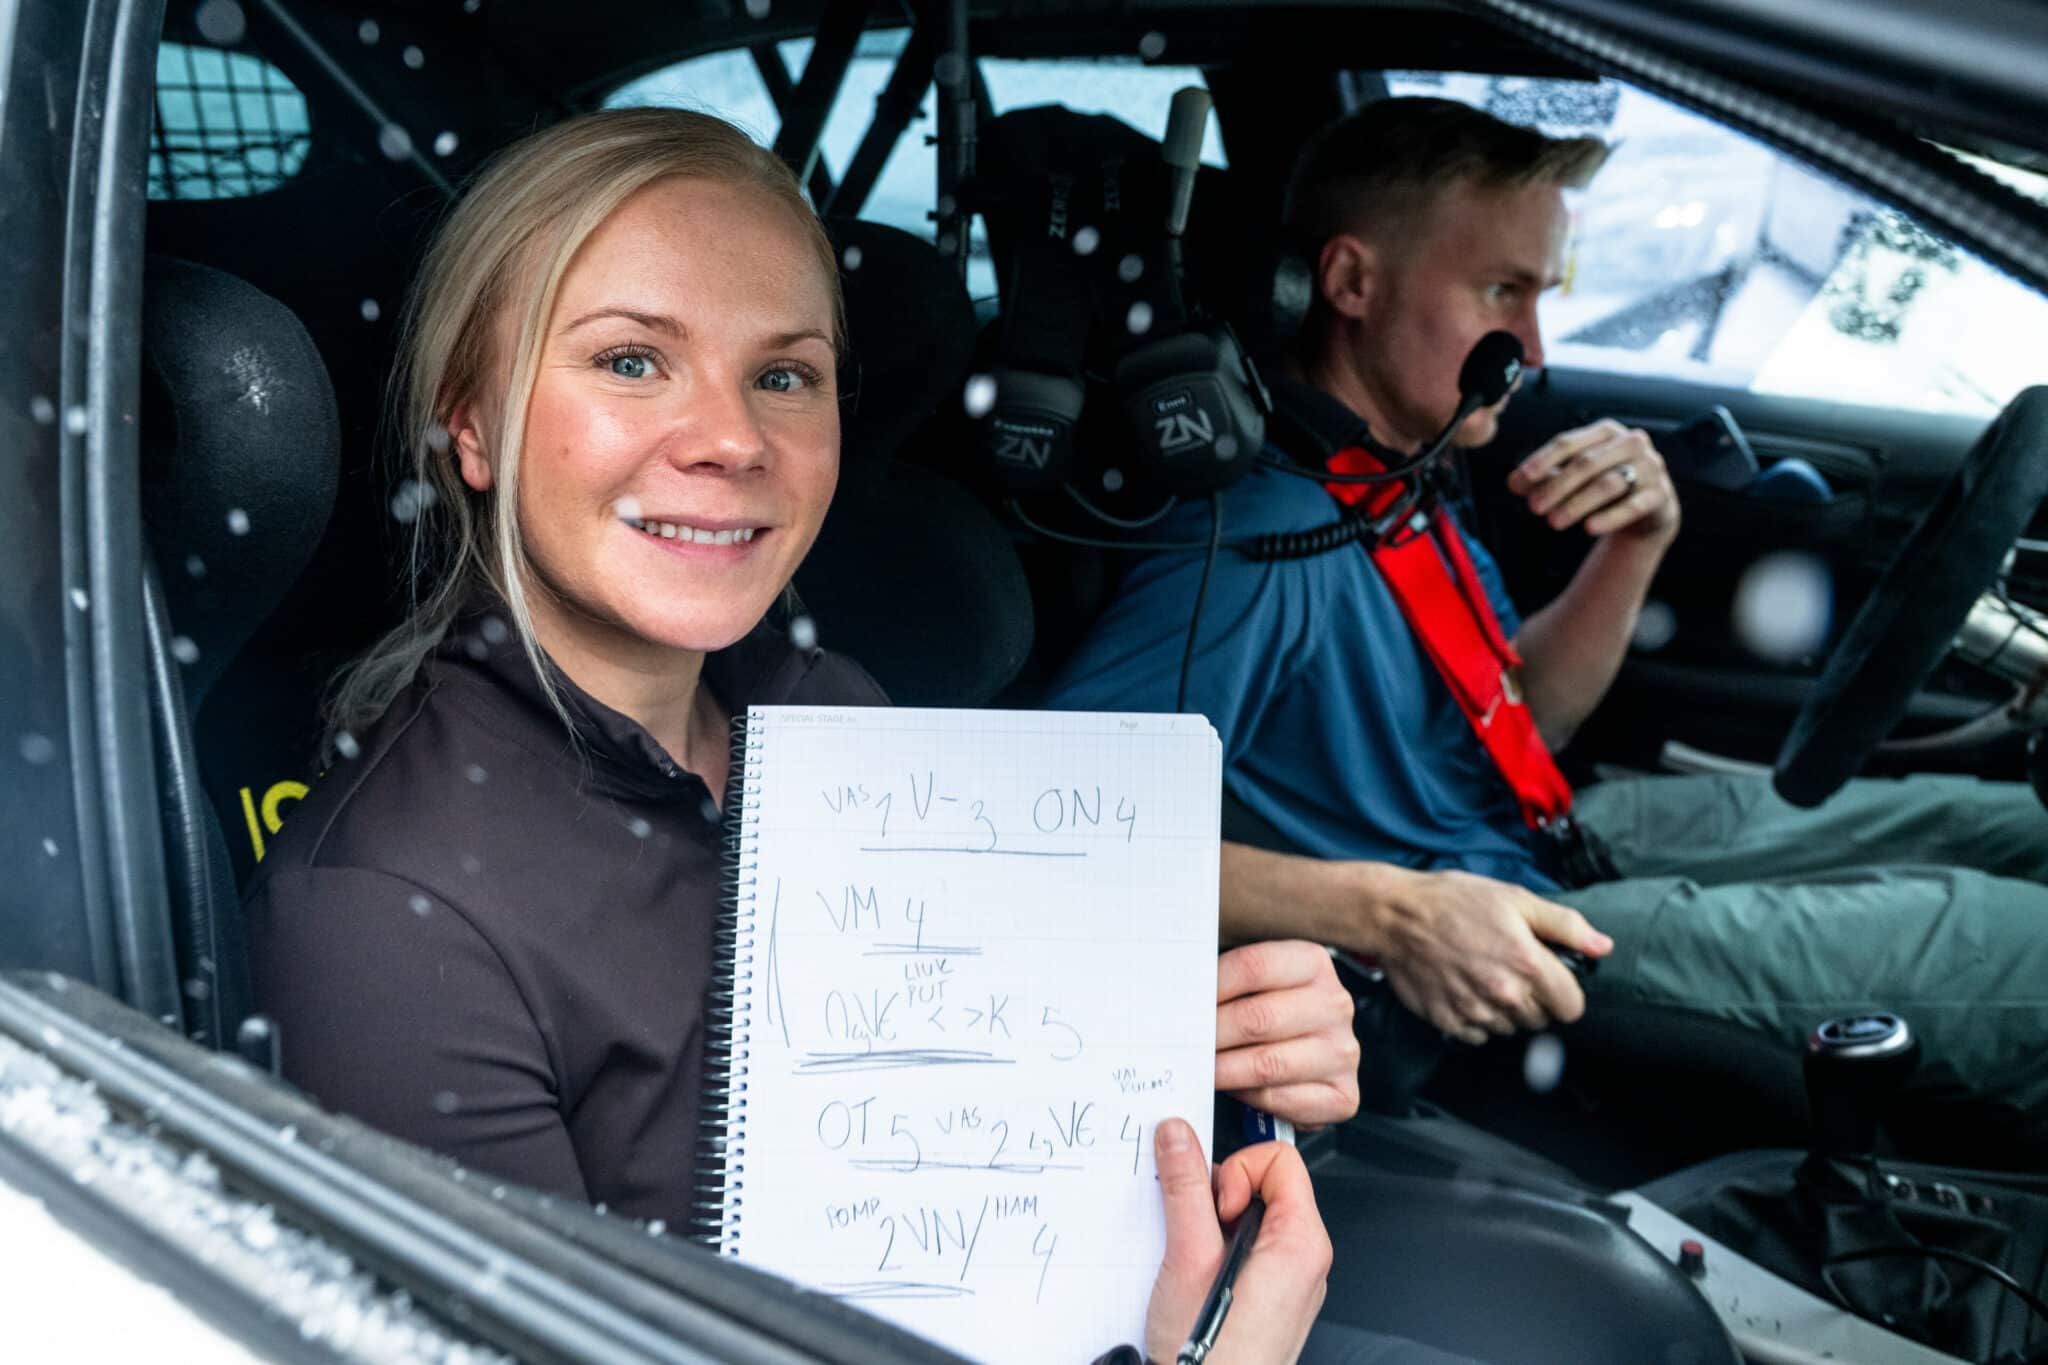 ZERO
ZERO
Enni
ZN
ZN
SPECIAL STAGE no. Page /
VAS 1 V-3 ON 4
VM 4
LIUK
PUT
VE < >K 5
VAI
OT 5 VAS 2 VE 4
POMP 2VN/ HAM 4